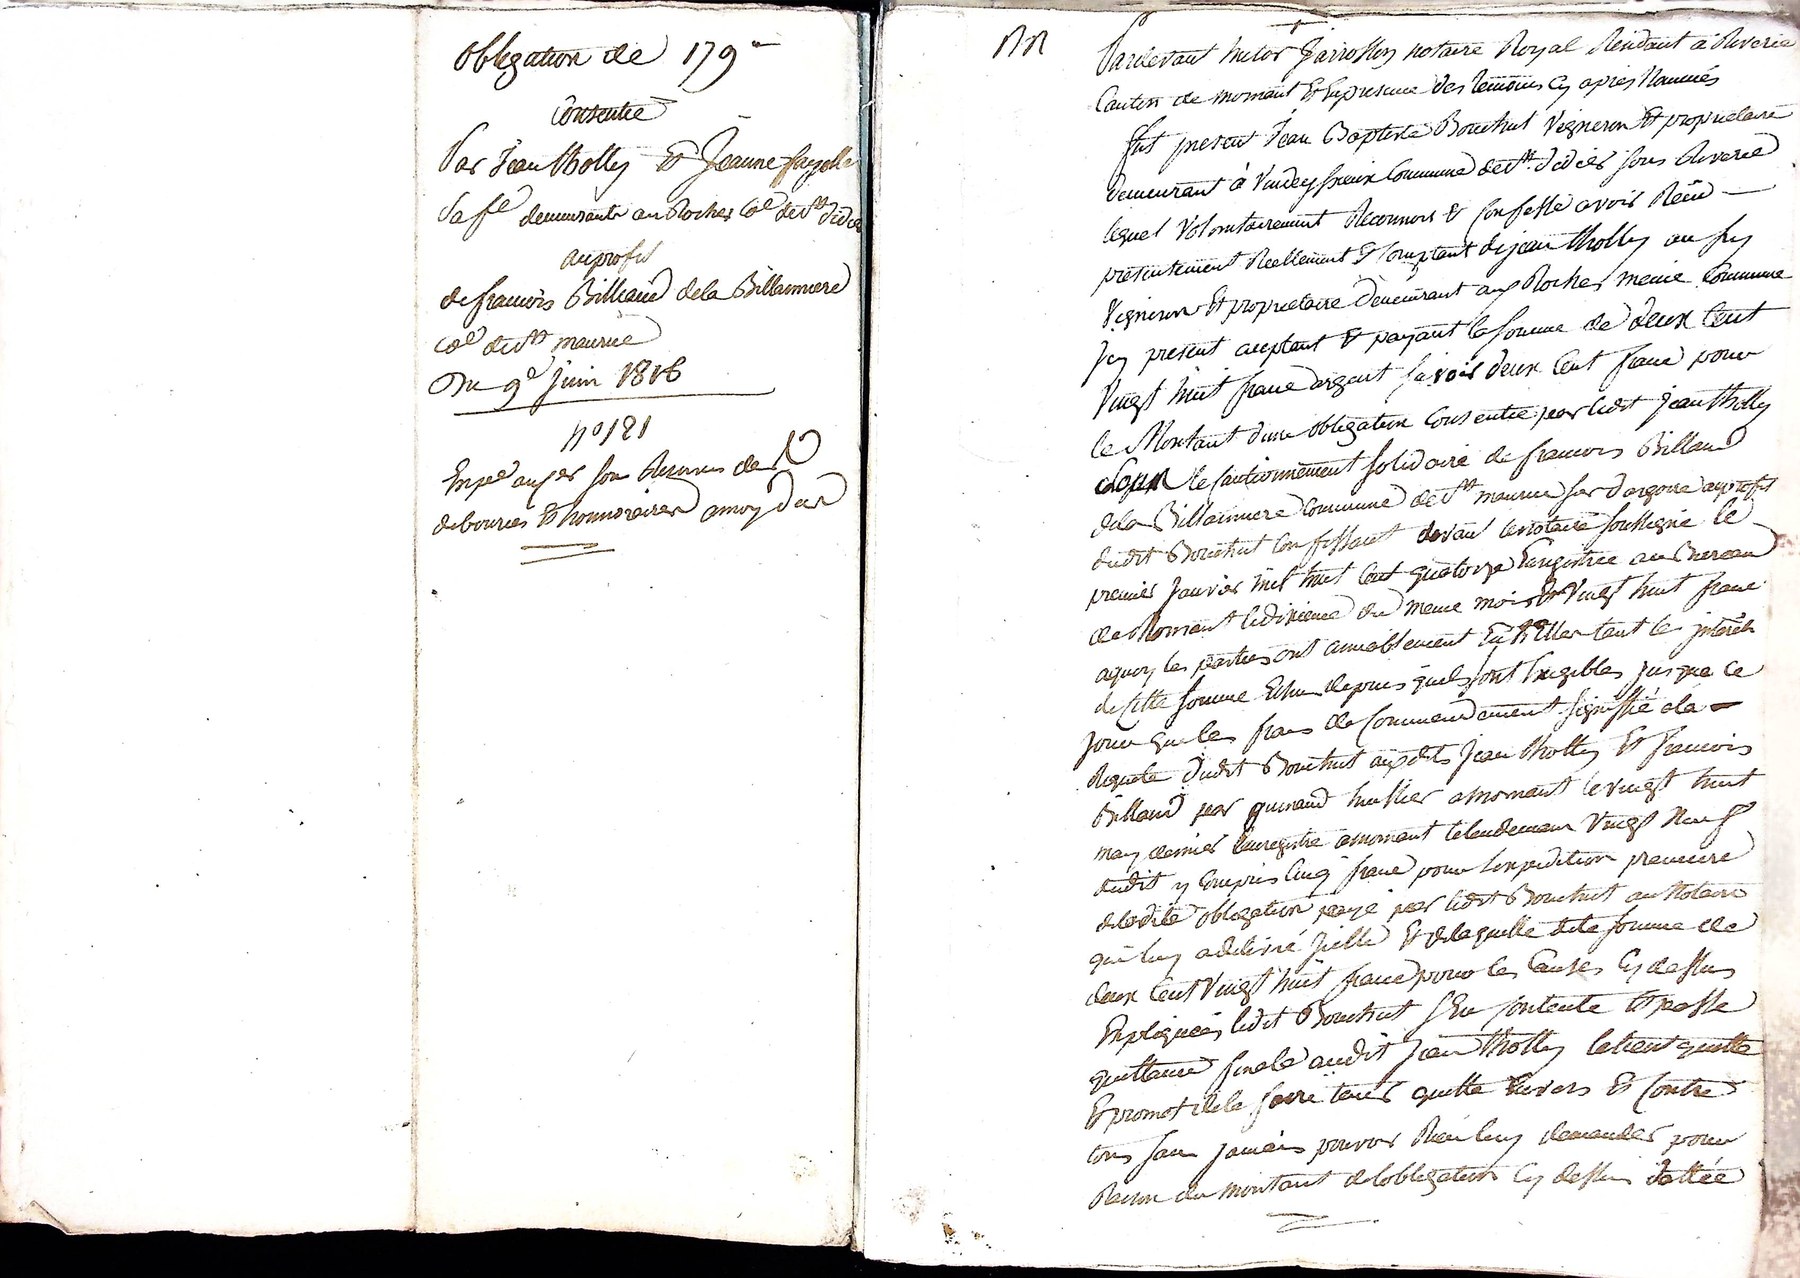 obligation de 179
Consentie
Par Jean Tholly Et Jeanne fayolle
Sa fe demeurants au Rocher Cne de St didier
au profit
de francois Billiand de la Billanniere
Cne de St maurice
Du 9e Juin 1816
no 121
debources Et honnoraires a moy dus
Pardevant hector Jarrosson notaire Royal Residant a Riverie
Canton de mornant Et En presence des temoins Cy apres Nommés
fut present Jean Baptiste Bouchut Vigneron Et proprietaire
demeurant à Commune de St didier sous Riverie
lequel Volontairement Reconnois & Confesse avoir Recu
presentement Reellement & Comptant de jean tholly au fiy
Vigneron Et proprietaire demeurant au Rocher meme Commune
Jcy present acceptant & payant la somme de deux Cent
Vingt huit franc argent savoir deux Cent franc pour
le Montant dune obligation Consentie par ledit jean Tholly
sous le Cautionnement solidaire de francois Billand
de la Billanniere Commune de St maurice sur dargoire au profit
dudit Bouchut Confessant devant le notaire soussigné le
premier Janvier mil huit Cent quatorze Enregistree au Bureau
de Mornant le dixieme du meme mois Et Vingt huit franc
aquoy les parties ont amiablement tant les jnterets
de Cette somme Echu depuis quels sont Exigibles jusque Ce
jour que les frais de Commandement signiffié ala
Requete dudit Bouchut auxdits Jean tholly Et francois
Billand par guinand huissier a mornant le vingt huit
may dernier Enregistré a mornant le lendemain Vingt Neuf
dudit y Compris Cinq franc pour lexpedition premiere
deladite obligation payé par ledit Bouchut au Notaire
qui luy a delivré jcelle Et de laquelle dite somme de
deux Cent Vingt huit franc pour les Causes Cy dessus
Expliquées ledit Bouchut sEn Contente Et passe
quittance finale audit jean tholly le tient quitte
Et promet de le faire tenir quitte Envers Et Contre
tous sans jamais pouvoir Rien luy demander pour
Raison du montant de lobligation Cy dessus dattée